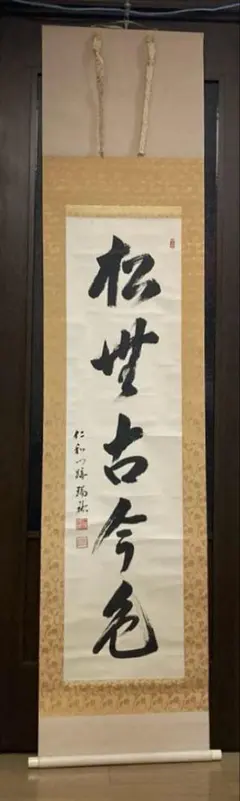 松無古今色
仁和